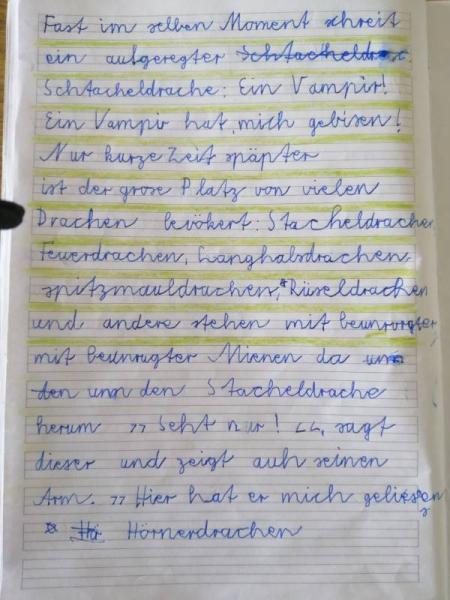 Fast im selben Moment schreit
ein aufgeregter Schtacheldrac.
Schtacheldrache: Ein Vampir!
Ein Vampir hat mich gebisen!
Nur kurze Zeit späpter
ist der grose Platz von vielen
Drachen bevökert: Stacheldrachen
Feuerdrachen, Langhalsdrachen,
spitzmauldrachen,* Rüseldrachen
und andere stehen mit
mit beunrugter Mienen da um
den um den Stacheldrache
herum ,, Seht nur! “, sagt
dieser und zeigt auh seinen
Arm. ,, Hier hat er mich
* Hör Hörnerdrachen